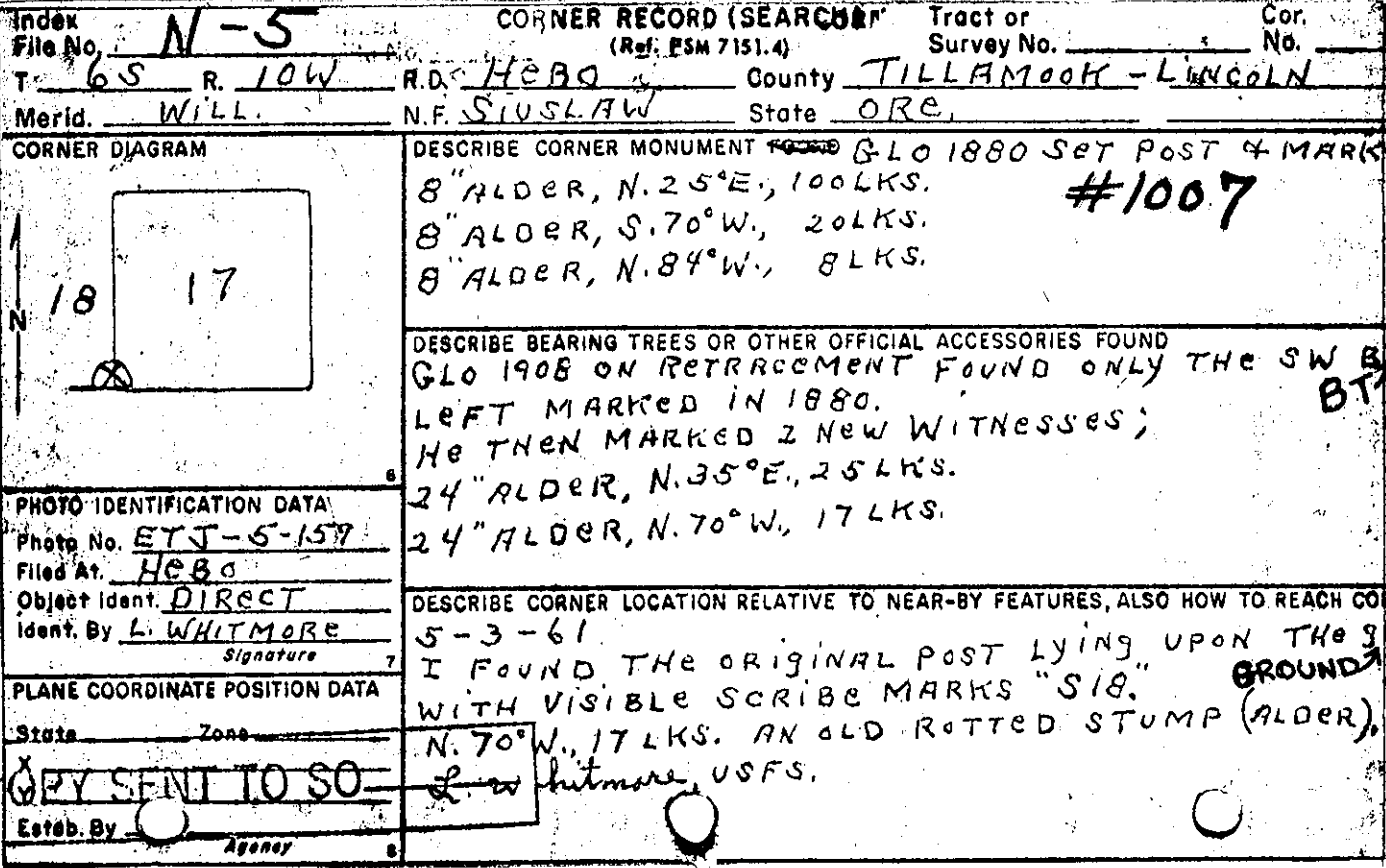 Index
File No. N-5
CORNER RECORD (SEARCH
(Ref: FSM 7151.4)
Tract or
Survey No.
Cor.
No.
T. 6S R. 10W R.D. HEBO County TILLAMOOK - LINCOLN
Merid. WILL. N.F. SIUSLAW State ORE.
CORNER DIAGRAM
18
17
N
6
DESCRIBE CORNER MONUMENT FOUND GLO 1880 SET POST & MARK
8" ALDER, N. 25°E., 100 LKS.
#1007
8" ALDER, S. 70° W., 20 LKS.
8" ALDER, N. 84° W., 8 LKS.
DESCRIBE BEARING TREES OR OTHER OFFICIAL ACCESSORIES FOUND
GLO 1908 ON RETRACEMENT FOUND ONLY THE SW B
BT
LEFT MARKED IN 1880.
HE THEN MARKED 2 NEW WITNESSES;
24" ALDER, N. 35°E., 25 LKS.
24" ALDER, N. 70° W., 17 LKS.
PHOTO IDENTIFICATION DATA
Photo No. ETJ-5-159
Filed At. HEBO
Object Ident. DIRECT
Ident. By L. WHITMORE
Signature
7
DESCRIBE CORNER LOCATION RELATIVE TO NEAR-BY FEATURES, ALSO HOW TO REACH CO
5-3-61
I FOUND THE ORIGINAL POST LYING UPON THE g
GROUND
WITH VISIBLE SCRIBE MARKS "S18."
N. 70° W., 17 LKS. AN OLD ROTTED STUMP (ALDER).
L. Whitmore, USFS.
PLANE COORDINATE POSITION DATA
State Zone
X
Y
COPY SENT TO SO
Estab. By
Agency
8